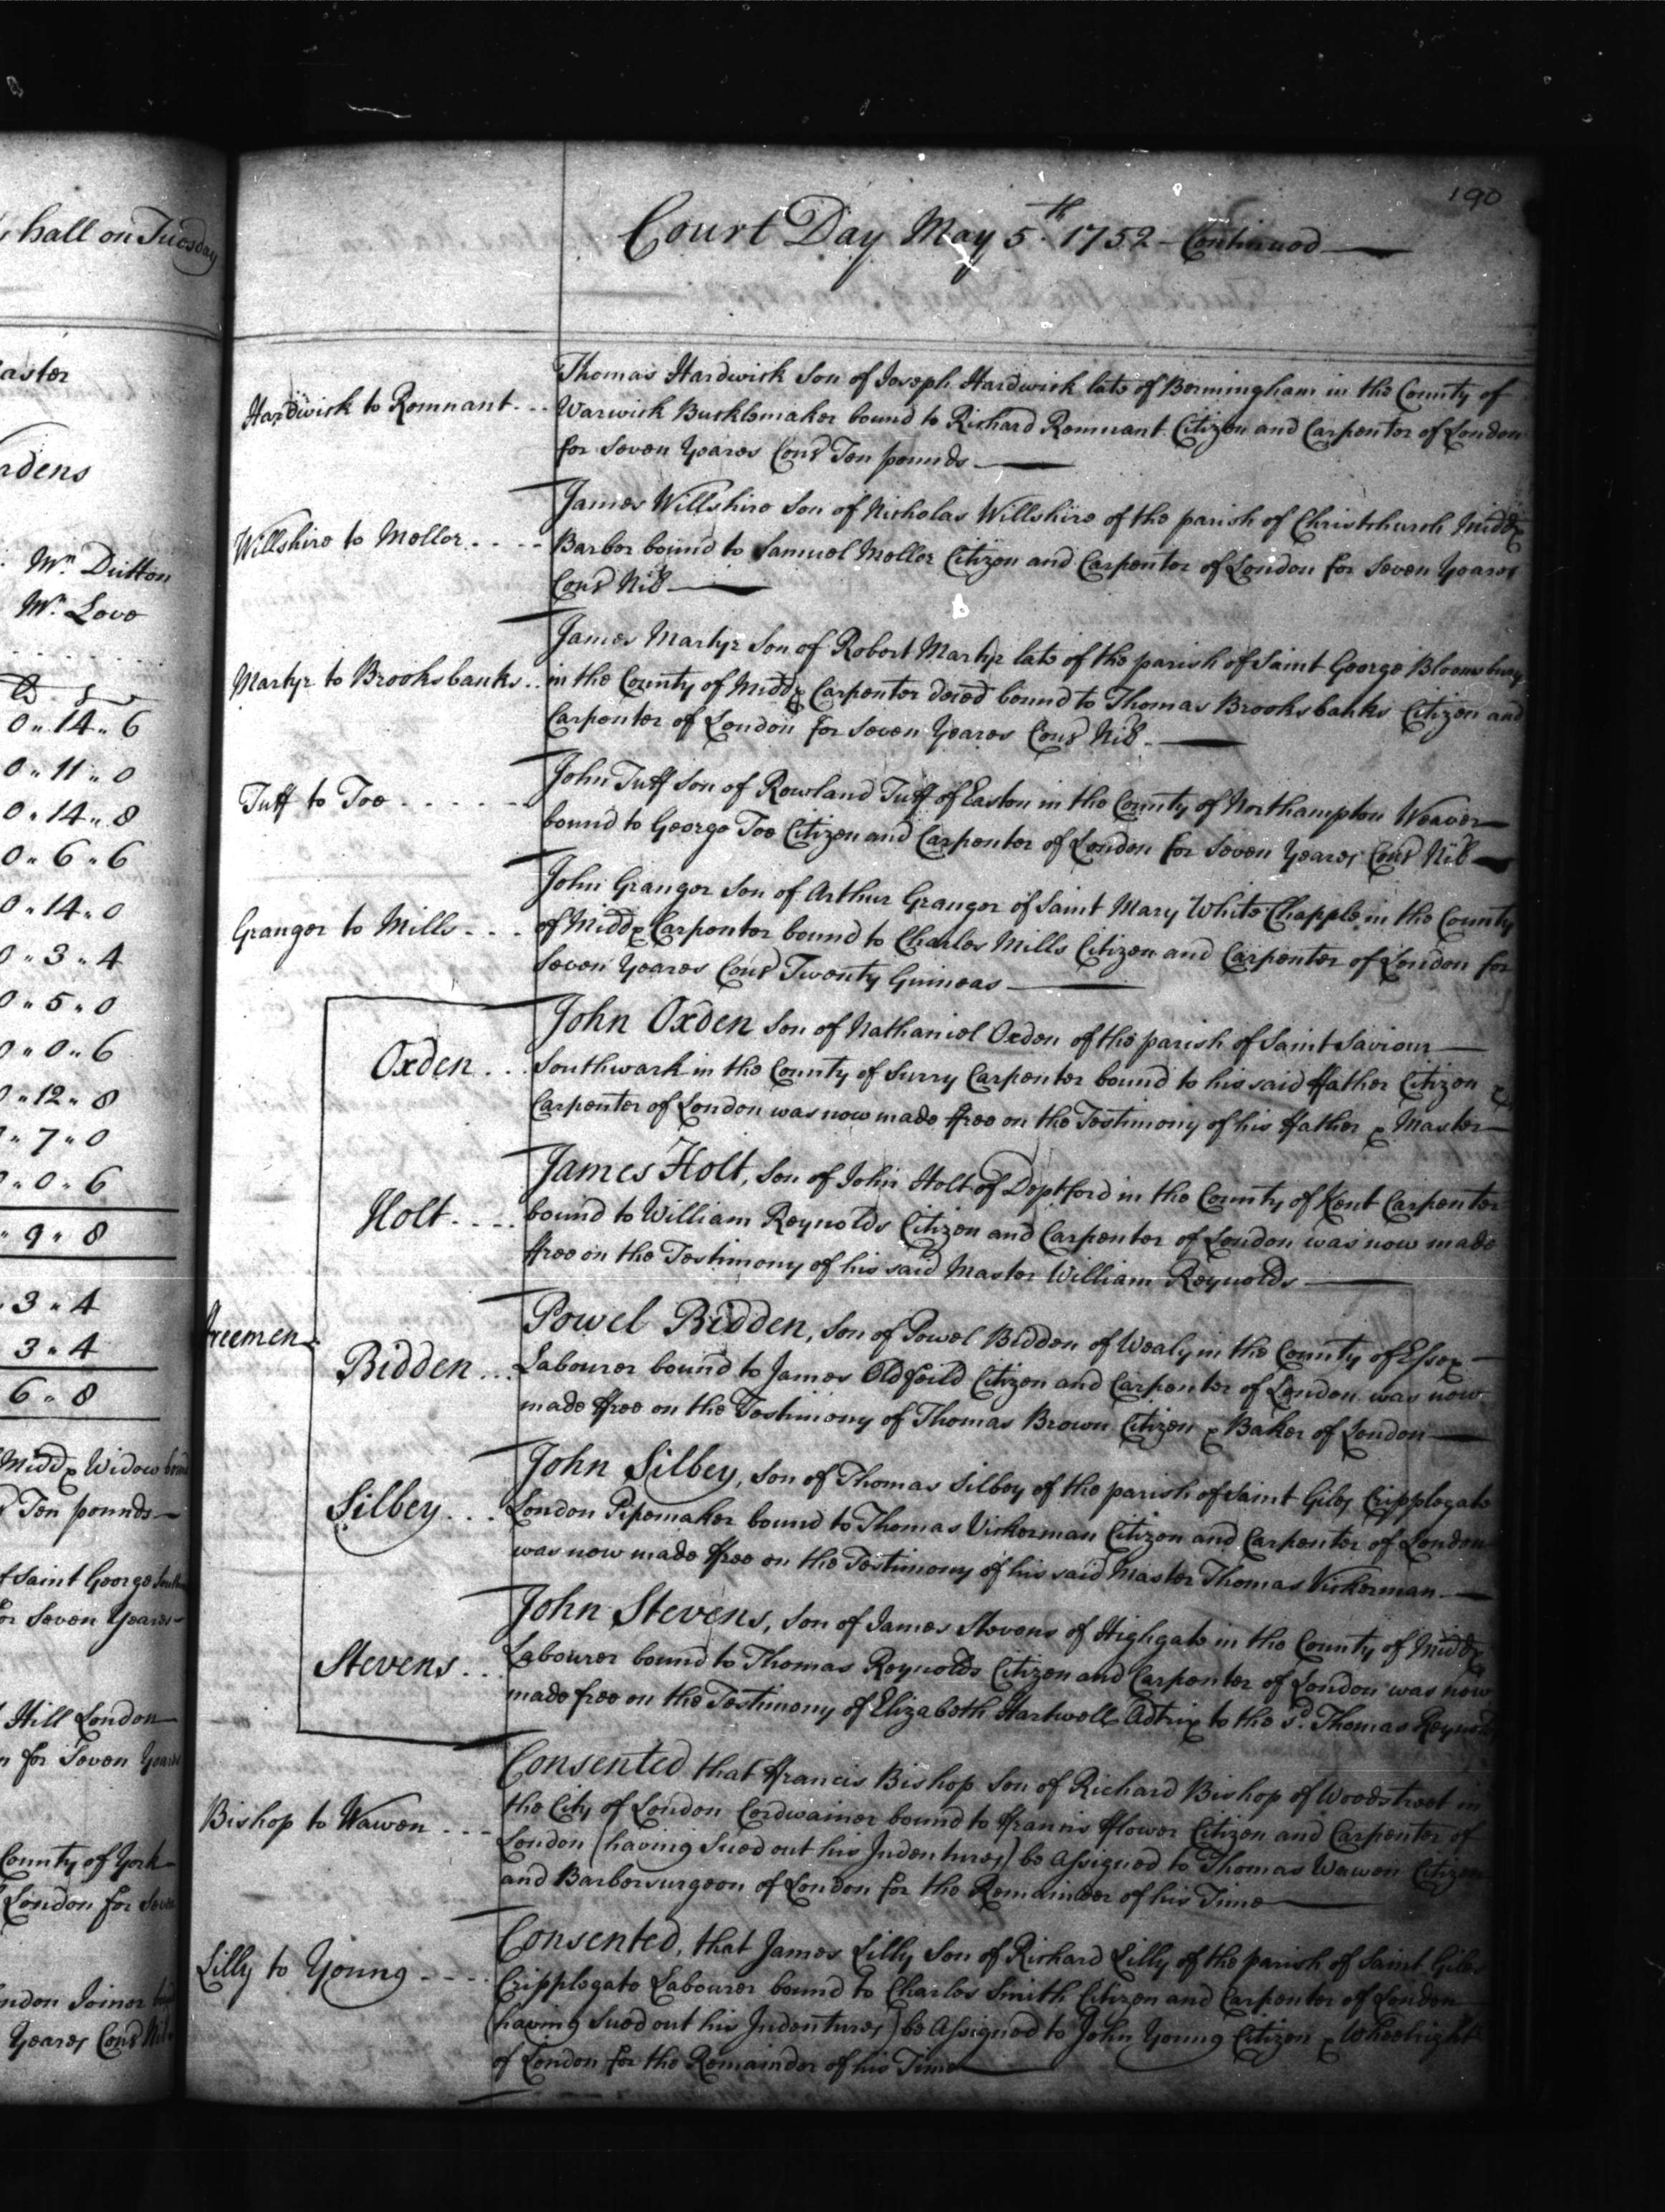 hall on Tuesday
aster
rdens
Mr. Dutton
Mr. Love
0 " 14 " 6
0 " 11 " 0
0 " 14 " 8
0 " 6 " 6
0 " 14 " 0
0 " 3 " 4
0 " 5 " 0
0 " 0 " 6
" 12 " 8
" 7 " 0
" 0 " 6
" 9 " 8
3 " 4
3 " 4
6 " 8
Middx Widow
Ten pounds
Saint George
for Seven Yeares
Hill London
for Seven
County of York
London for
London Joiner
Yeares Cons
190
Court Day May 5th. 1752 - Continued
Hardwick to Remnant
Thomas Hardwick Son of Joseph Hardwick late of Bermingham in the County of
Warwick Bucklemaker bound to Richard Remnant Citizen and Carpenter of London
for Seven Yeares Cons Ten pounds
Willshire to Meller
James Willshire Son of Nicholas Willshire of the parish of Christchurch Middx
Barber bound to Samuel Meller Citizen and Carpenter of London for Seven Yeares
Cons Nil
Martyr to Brooksbanks
James Martyr Son of Robert Martyr late of the parish of Saint George Bloomsbury
in the County of Middx Carpenter deced bound to Thomas Brooksbanks Citizen and
Carpenter of London for Seven Yeares Cons Nil
Tuff to Toe
John Tuff Son of Rowland Tuff of Easton in the County of Northampton Weaver
bound to George Toe Citizen and Carpenter of London for Seven Yeares Cons Nil
Granger to Mills
John Granger Son of Arthur Granger of Saint Mary White Chapple in the County
of Middx Carpenter bound to Charles Mills Citizen and Carpenter of London for
Seven Yeares Cons Twenty Guineas
ffreemen
Oxden
John Oxden Son of Nathaniel Oxden of the parish of Saint Saviour
Southwark in the County of Surry Carpenter bound to his said ffather Citizen &
Carpenter of London was now made ffree on the Testimony of his ffather & Master
Holt
James Holt, Son of John Holt of Deptford in the County of Kent Carpenter
bound to William Reynolds Citizen and Carpenter of London was now made
ffree on the Testimony of his said Master William Reynolds
Bidden
Powel Bidden, Son of Powel Bidden of Wealy in the County of Essex
Labourer bound to James Oldfeild Citizen and Carpenter of London was now
made ffree on the Testimony of Thomas Brown Citizen & Baker of London
Silbey
John Silbey, Son of Thomas Silbey of the parish of Saint Giles Cripplegate
London Pipemaker bound to Thomas Vickerman Citizen and Carpenter of London
was now made ffree on the Testimony of his said Master Thomas Vickerman
Stevens
John Stevens, Son of James Stevens of Highgate in the County of Middx
Labourer bound to Thomas Reynolds Citizen and Carpenter of London was now
made free on the Testimony of Elizabeth Hartwell Adtrix to the sd. Thomas Reynolds
Bishop to Wawen
Consented that ffrancis Bishop Son of Richard Bishop of Woodstreet in
the City of London Cordwainer bound to ffrancis fflower Citizen and Carpenter of
London (having Sued out his Indentures) be Assigned to Thomas Wawen Citizen
and Barbersurgeon of London for the Remainder of his Time
Lilly to Young
Consented, that James Lilly Son of Richard Lilly of the parish of Saint Giles
Cripplegate Labourer bound to Charles Smith Citizen and Carpenter of London
(having Sued out his Indentures) be Assigned to John Young Citizen & Wheelright
of London for the Remainder of his Time